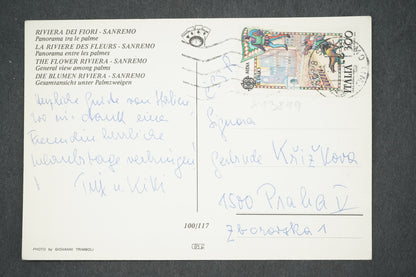 RIVIERA DEI FIORI - SANREMO
Panorama tra le palme
LA RIVIERE DES FLEURS - SANREMO
Panorama entre les palmes
THE FLOWER RIVIERA - SANREMO
General view among palms
DIE BLUMEN RIVIERA - SANREMO
Gesamtansicht unter Palmzweigen
ITALIA 300
ČSSR
Herzliche Grüße vom Hafen,
wo wir dank einer
Freundin herrliche
Urlaubstage verbringen!
u. Kiki
Signora
Gertrude Křižkova
1500 Praha V
Zborovska 1
100/117
PHOTO by GIOVANNI TRIMBOLI